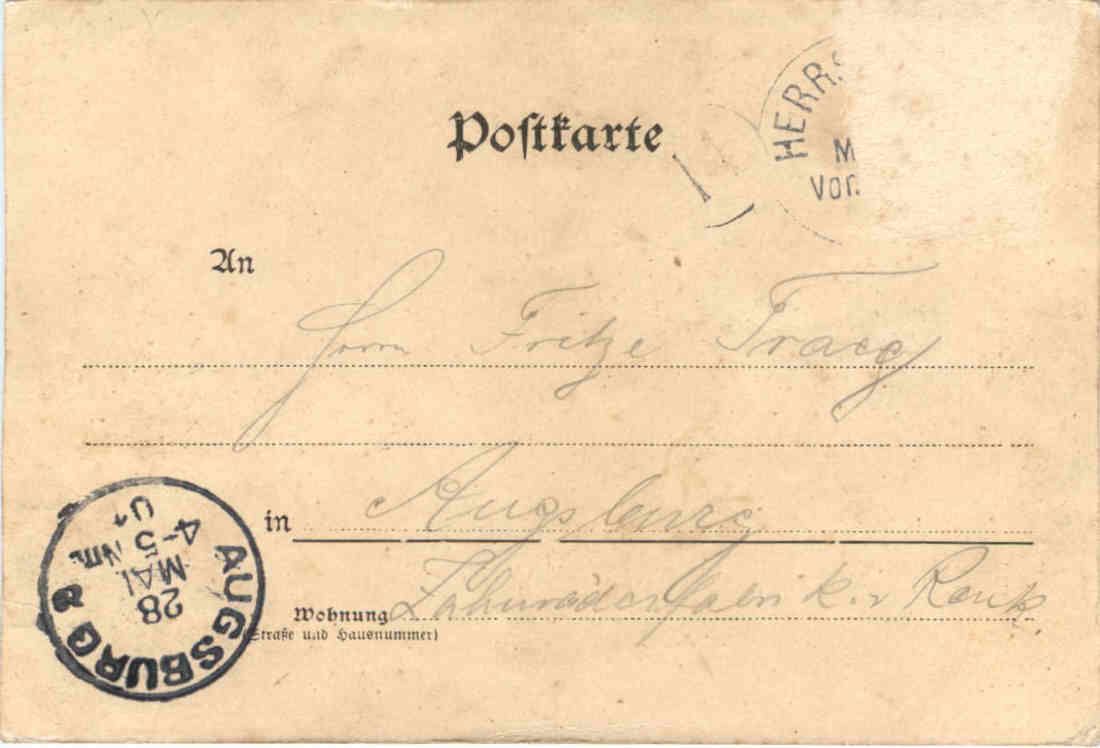 Postkarte
HERRS
M
Vor.
An
Herrn Fritze Tracy
in Augsburg
Wohnung Zahnräderfabrik v Renk
(Straße und Hausnummer)
AUGSBURG 2
28
MAI
4-5 Nm.